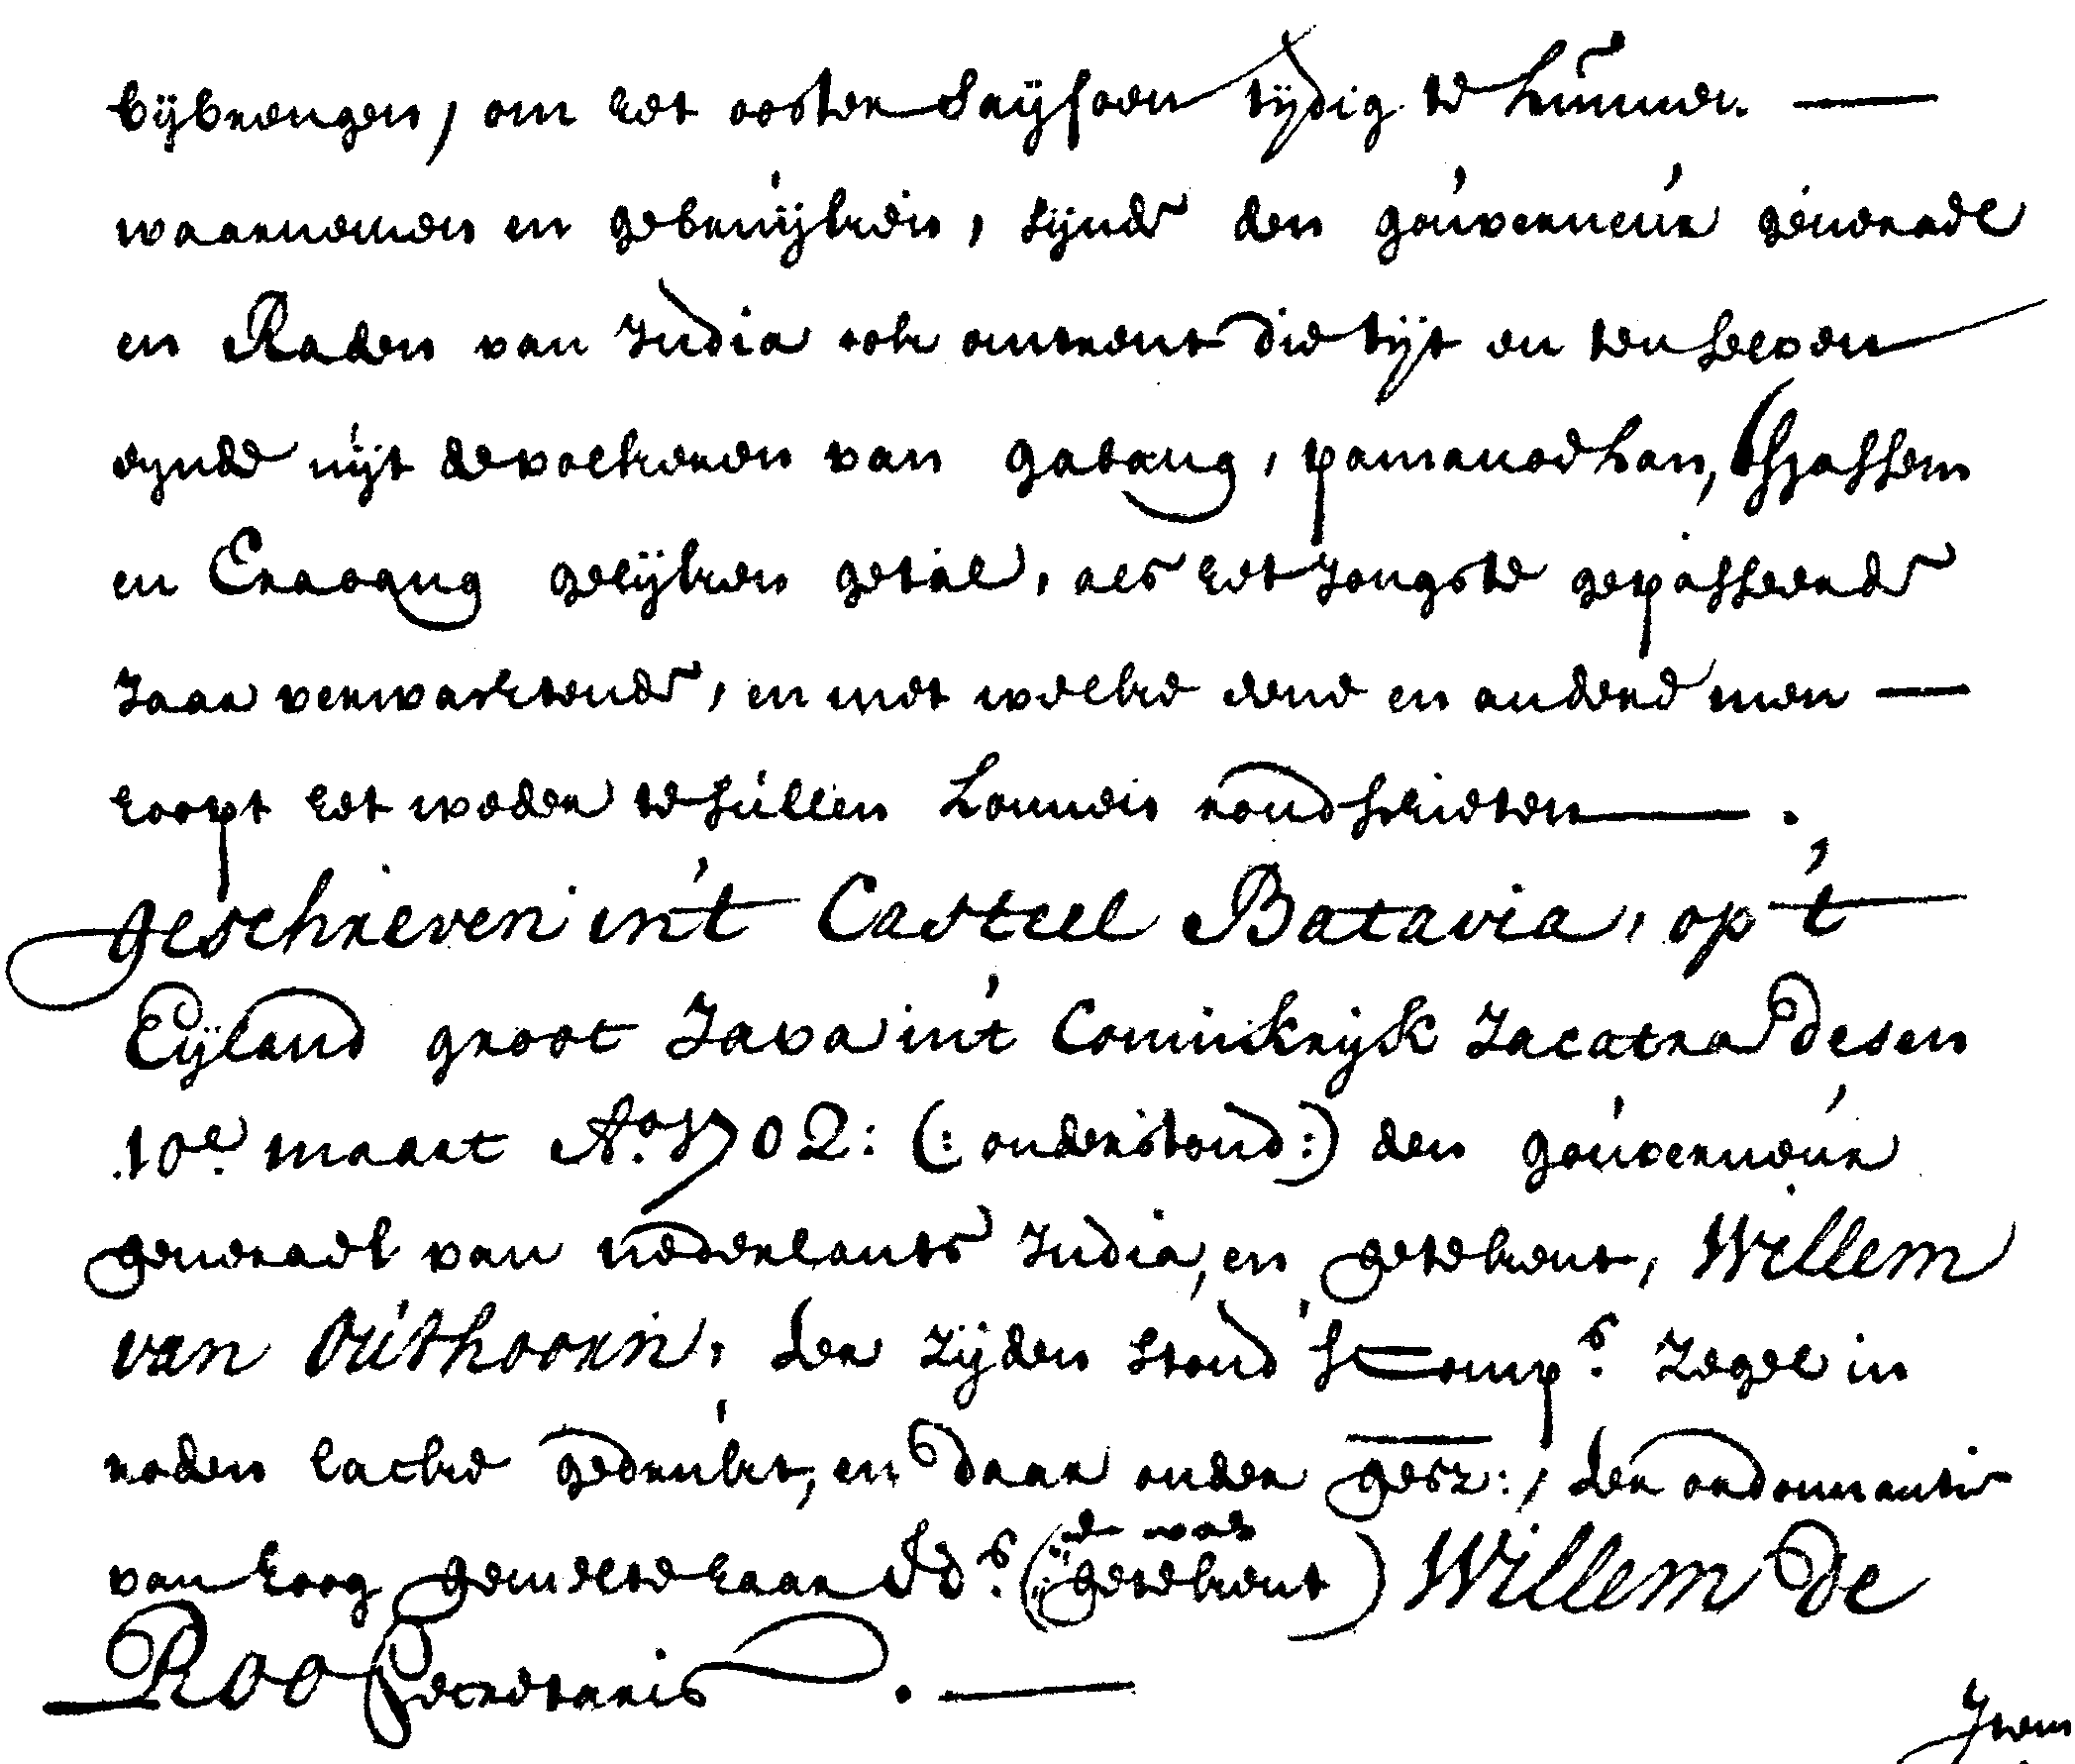 bijbrengen, om het ooster Saijsoen tijdig te kunnen. —
waarnemen en gebruijken, sijnde den gouverneur generael
en Raden van India ook omtrent die tijt en ten selven
eynde uijt de volkeren van gabang, pamanoekan, Tsjassem
en Crawang gelijken getal, als het Jongste gepasseerde
Jaar verwachtende, en met welke eene en andere men —
hoopt het werk te sullen konnen rondschieten —.
geschreven in't Casteel Batavia, op 't
Eijland groot Java in't Coninkrijk Jacatra desen
10e. maart Ao. 1702: (: onderstond:) den gouverneur
generael van nederlants India, en getekent, Willem
van Outhoorn, ter zijden stond 'sComps. Zegel in
roden lacke gedrukt, en daar onder gesz:, ter ordonnantie
van hoog gemelte haar Eds. (:getekent) de was Willem de
Roo Secretaris. —
Item